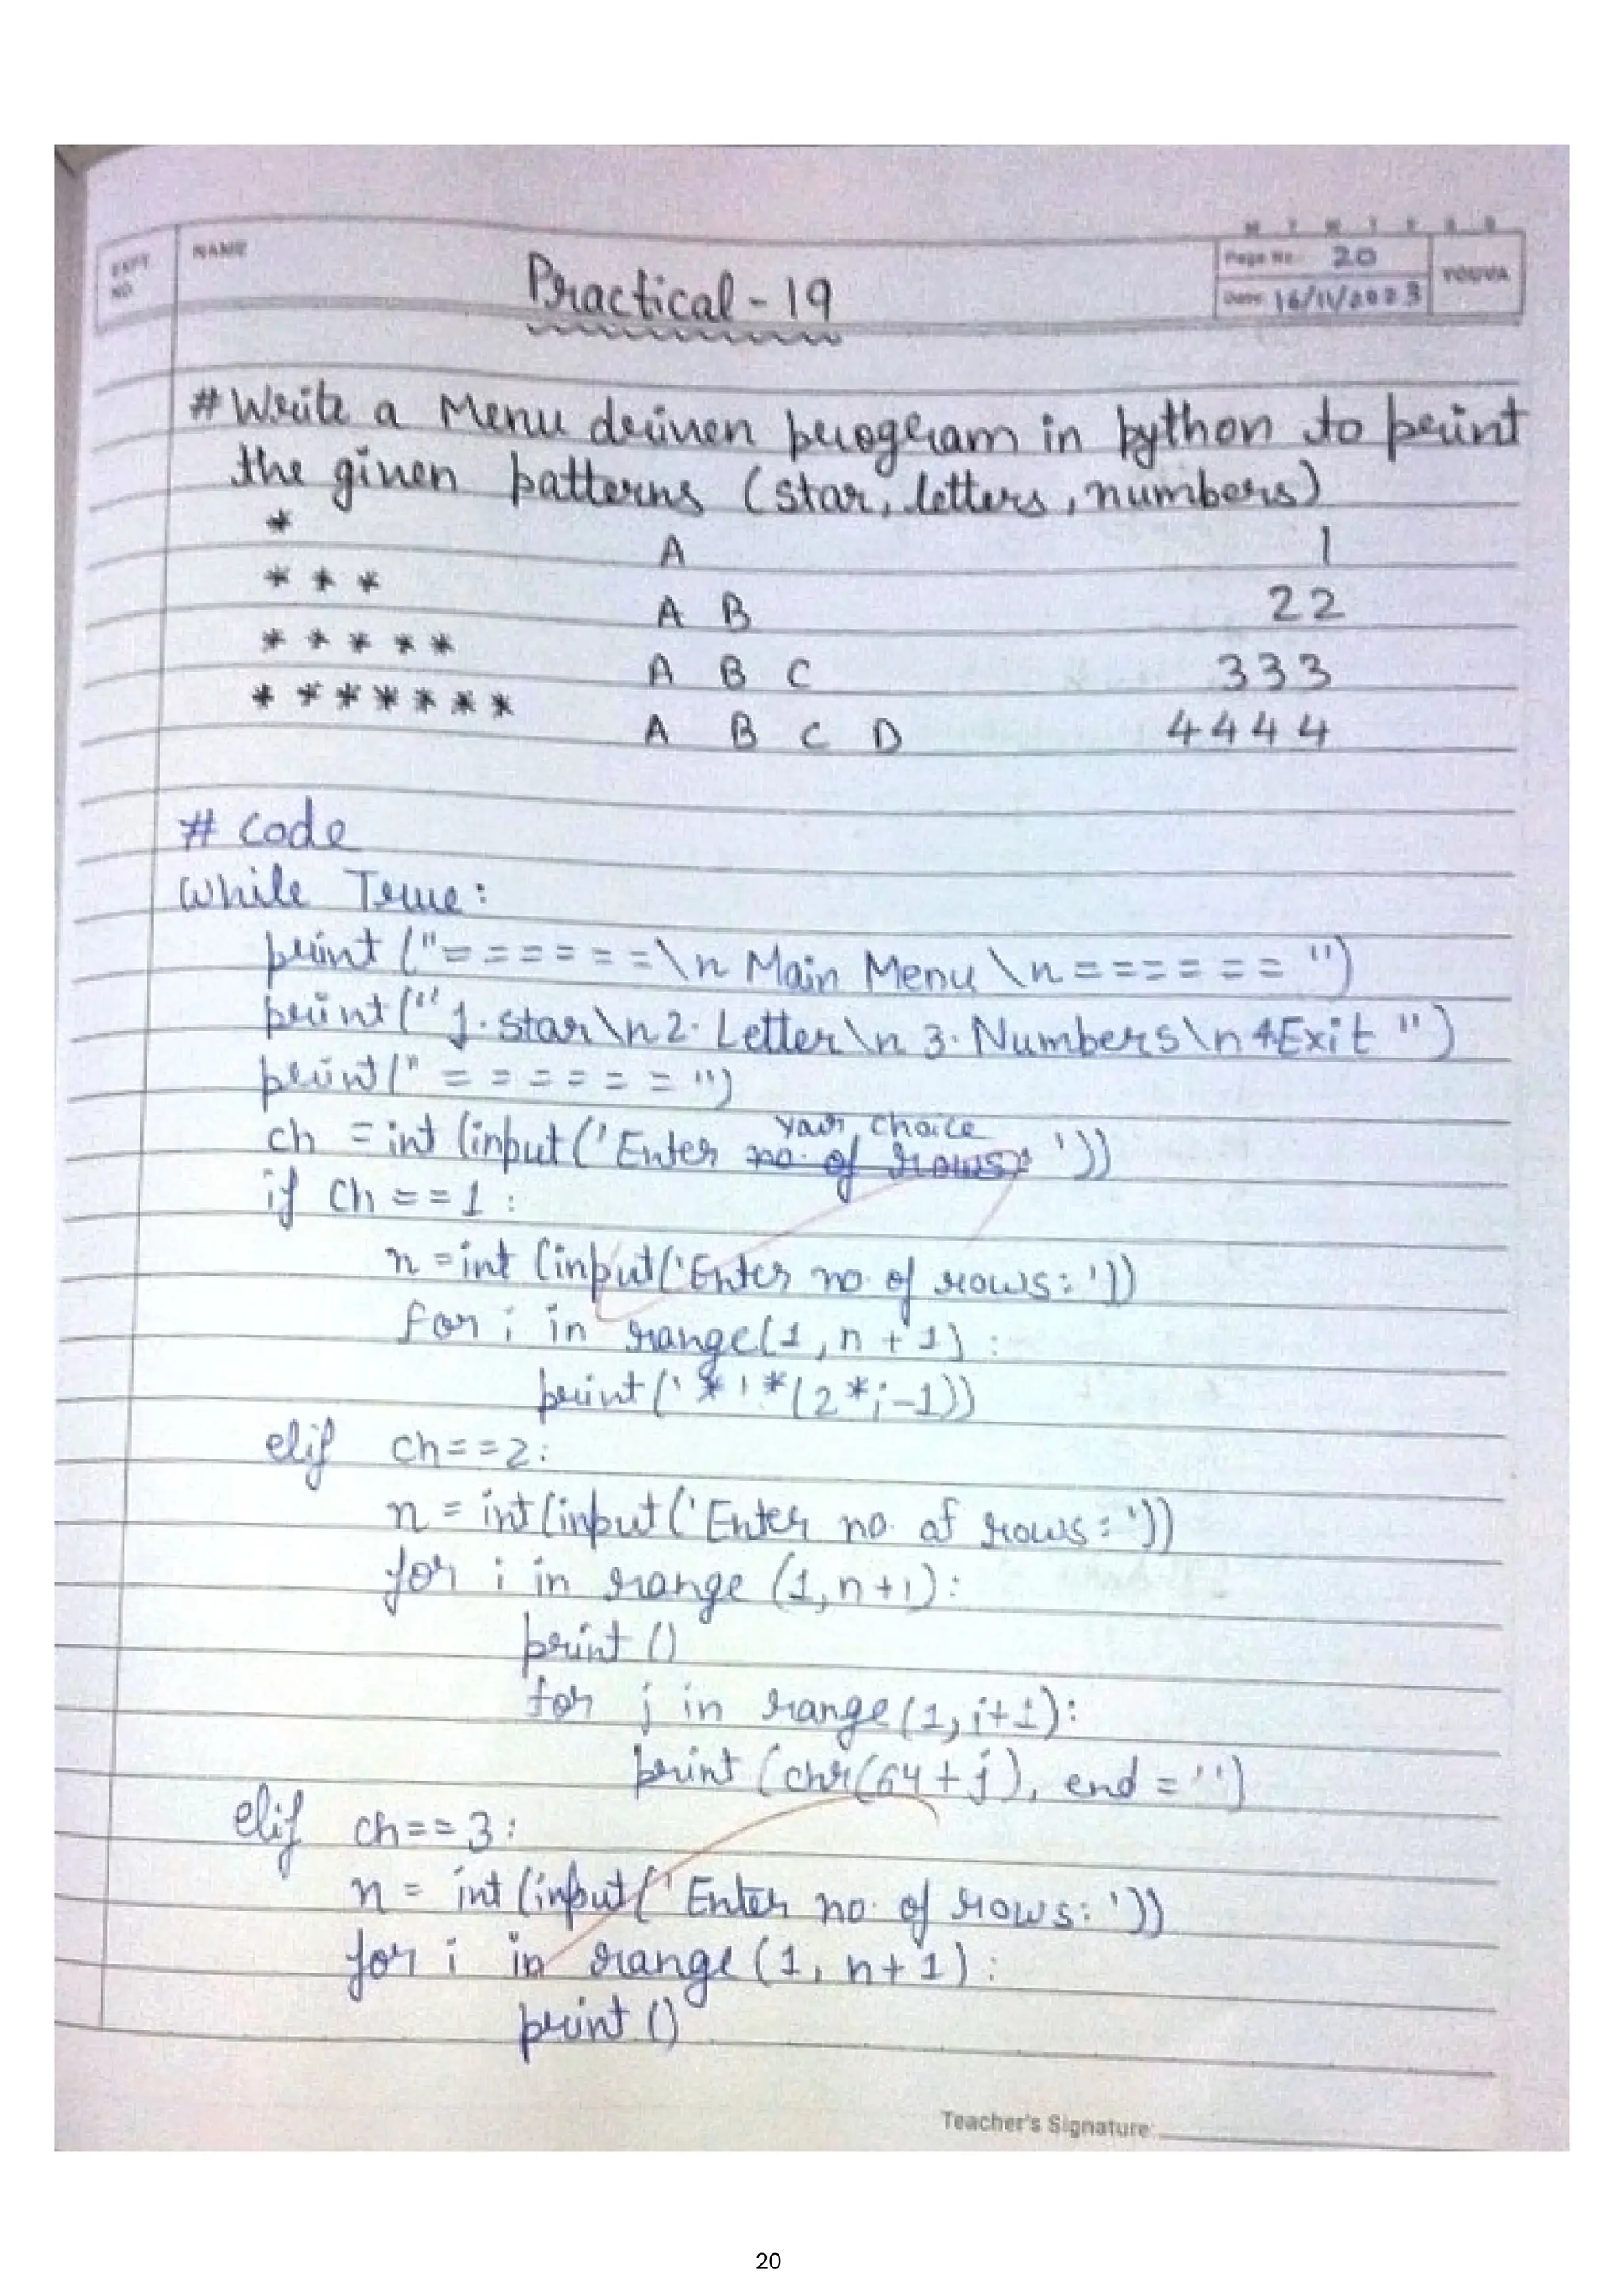 EXPT. NO.
NAME
Practical - 19
M T W T F S S
Page No. 20
Date: 16/11/2023
YOUVA
# Write a Menu driven program in python to print
the given patterns (star, letters, numbers)
* A 1
* * * A B 22
* * * * * A B C 333
* * * * * * * A B C D 4444
# Code
While True:
print ("======\n Main Menu \n====== ")
print (" 1. star\n2. Letter\n 3. Numbers\n 4Exit ")
print (" ====== ")
ch = int (input ('Enter your choice no. of rows: '))
if Ch ==1 :
n =int (input('Enter no. of rows: '))
For i in range(1, n + 1) :
print ('*'*(2*i-1))
elif ch==2:
n = int(input('Enter no. of rows: '))
for i in range (1, n+1):
print ()
for j in range(1, i+1):
print (chr(64+j), end = '')
elif ch==3:
n = int (input('Enter no. of rows: '))
for i in range (1, n+1) :
print ()
Teacher's Signature:
20